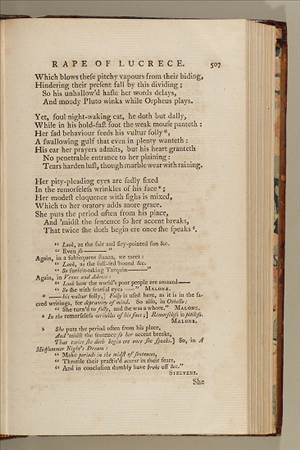 RAPE OF LUCRECE. 507
Which blows theſe pitchy vapours from their biding,
Hindering their preſent fall this dividing;
So his unhallow'd haſte her words delays,
And moody Pluto winks while Orpheus plays.
Yet, foul night-waking cat, he doth but dally,
While in his hold-faſt foot the weak mouſe panteth:
Her ſad behaviour feeds his vultur folly
A ſwallowing gulf that even in plenty wanteth:
His ear her prayers admits, but his heart granteth
No penetrable entrance to her plaining:
Tears harden luſt, though marble wear with raining.
Her pity-pleading eyes are ſadly fixed
In the remorſeleſs wrinkles of his face;
Her modeſt eloquence with ſighs is mixed,
Which to her oratory adds more grace.
She puts the period often from his place,
And 'midſt the ſentence ſo her accent breaks,
That twice ſhe doth begin ere once ſhe ſpeaks
" Look, as the fair and fiery-pointed ſun &c.
" Even ſo——"
Again, in a ſubſequent ſtanza, we meet:
" Look, as the full-fed hound &c.
" So ſurfeit-taking Tarquin——"
Again, in Venus and Adonis:
" Look how the world's poor people are amazed—
" So ſhe with fearful eyes—" MALONE.
— his vultur folly,] Folly is uſed here, as it is in the ſa-
cred writings, for depravity of mind. So alſo, in Othello:
" She turn'd to folly, and ſhe was a whore." MALONE.
In the remorſeleſs wrinkles of his face;] Remorſeleſs is pitileſs.
MALONE.
She puts the period often from his place,
And 'midſt the ſentence ſo her accent breaks,
That twice ſhe doth begin ere once ſhe ſpeaks.] So, in A
Midſummer Night's Dream:
" Make periods in the midſt of ſentences,
" Throttle their practis'd accent in their fears,
" And in concluſion dumbly have broke off &c."
STEEVENS.
She